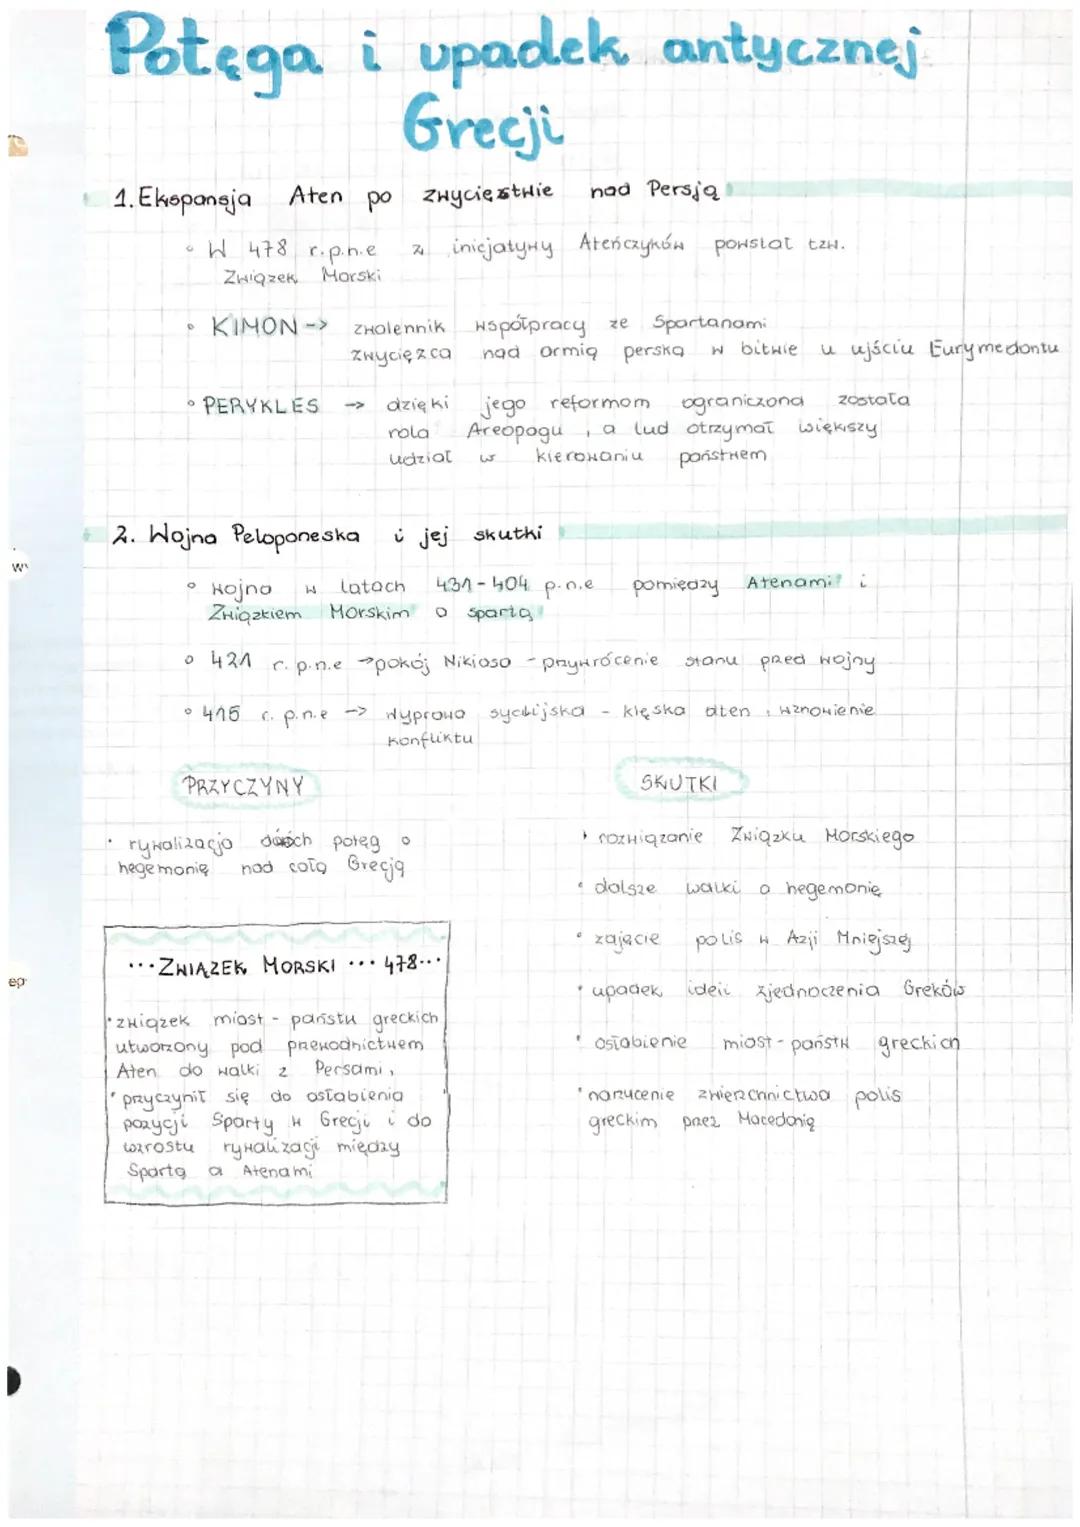 Potęga i upadek antycznej
Grecji
1. Ekspansja Aten po zwycięstwie nad Persją
W 478 r.p.n.e z inicjatywy Ateńczyków powstał tzw.
Związek Morski
KIMON -> zwolennik współpracy ze Spartanami
zwycięzca nad armią perską w bitwie u ujściu Eurymedontu
PERYKLES -> dzięki jego reformom ograniczona została
rola Areopagu, a lud otrzymał większy
udział w kierowaniu państwem
2. Wojna Peloponeska i jej skutki
wojna w latach 431-404 p.n.e pomiędzy Atenami i
Związkiem Morskim a Spartą
421 r.p.n.e -> pokój Nikiasa - przywrócenie stanu przed wojny
415 r.p.n.e -> wyprawa sycylijska - klęska Aten, wznowienie
konfliktu
PRZYCZYNY
SKUTKI
rywalizacja dwóch potęg o
hegemonię nad całą Grecją
rozwiązanie Związku Morskiego
dalsze walki o hegemonię
zajęcie polis w Azji Mniejszej
upadek ideii zjednoczenia Greków
osłabienie miast-państw greckich
narzucenie zwierzchnictwa polis
greckim przez Macedonię
...ZWIĄZEK MORSKI ... 478...
związek miast-państw greckich
utworzony pod przewodnictwem
Aten do walki z Persami,
przyczynił się do osłabienia
pozycji Sparty w Grecji i do
wzrostu rywalizacji między
Spartą a Atenami